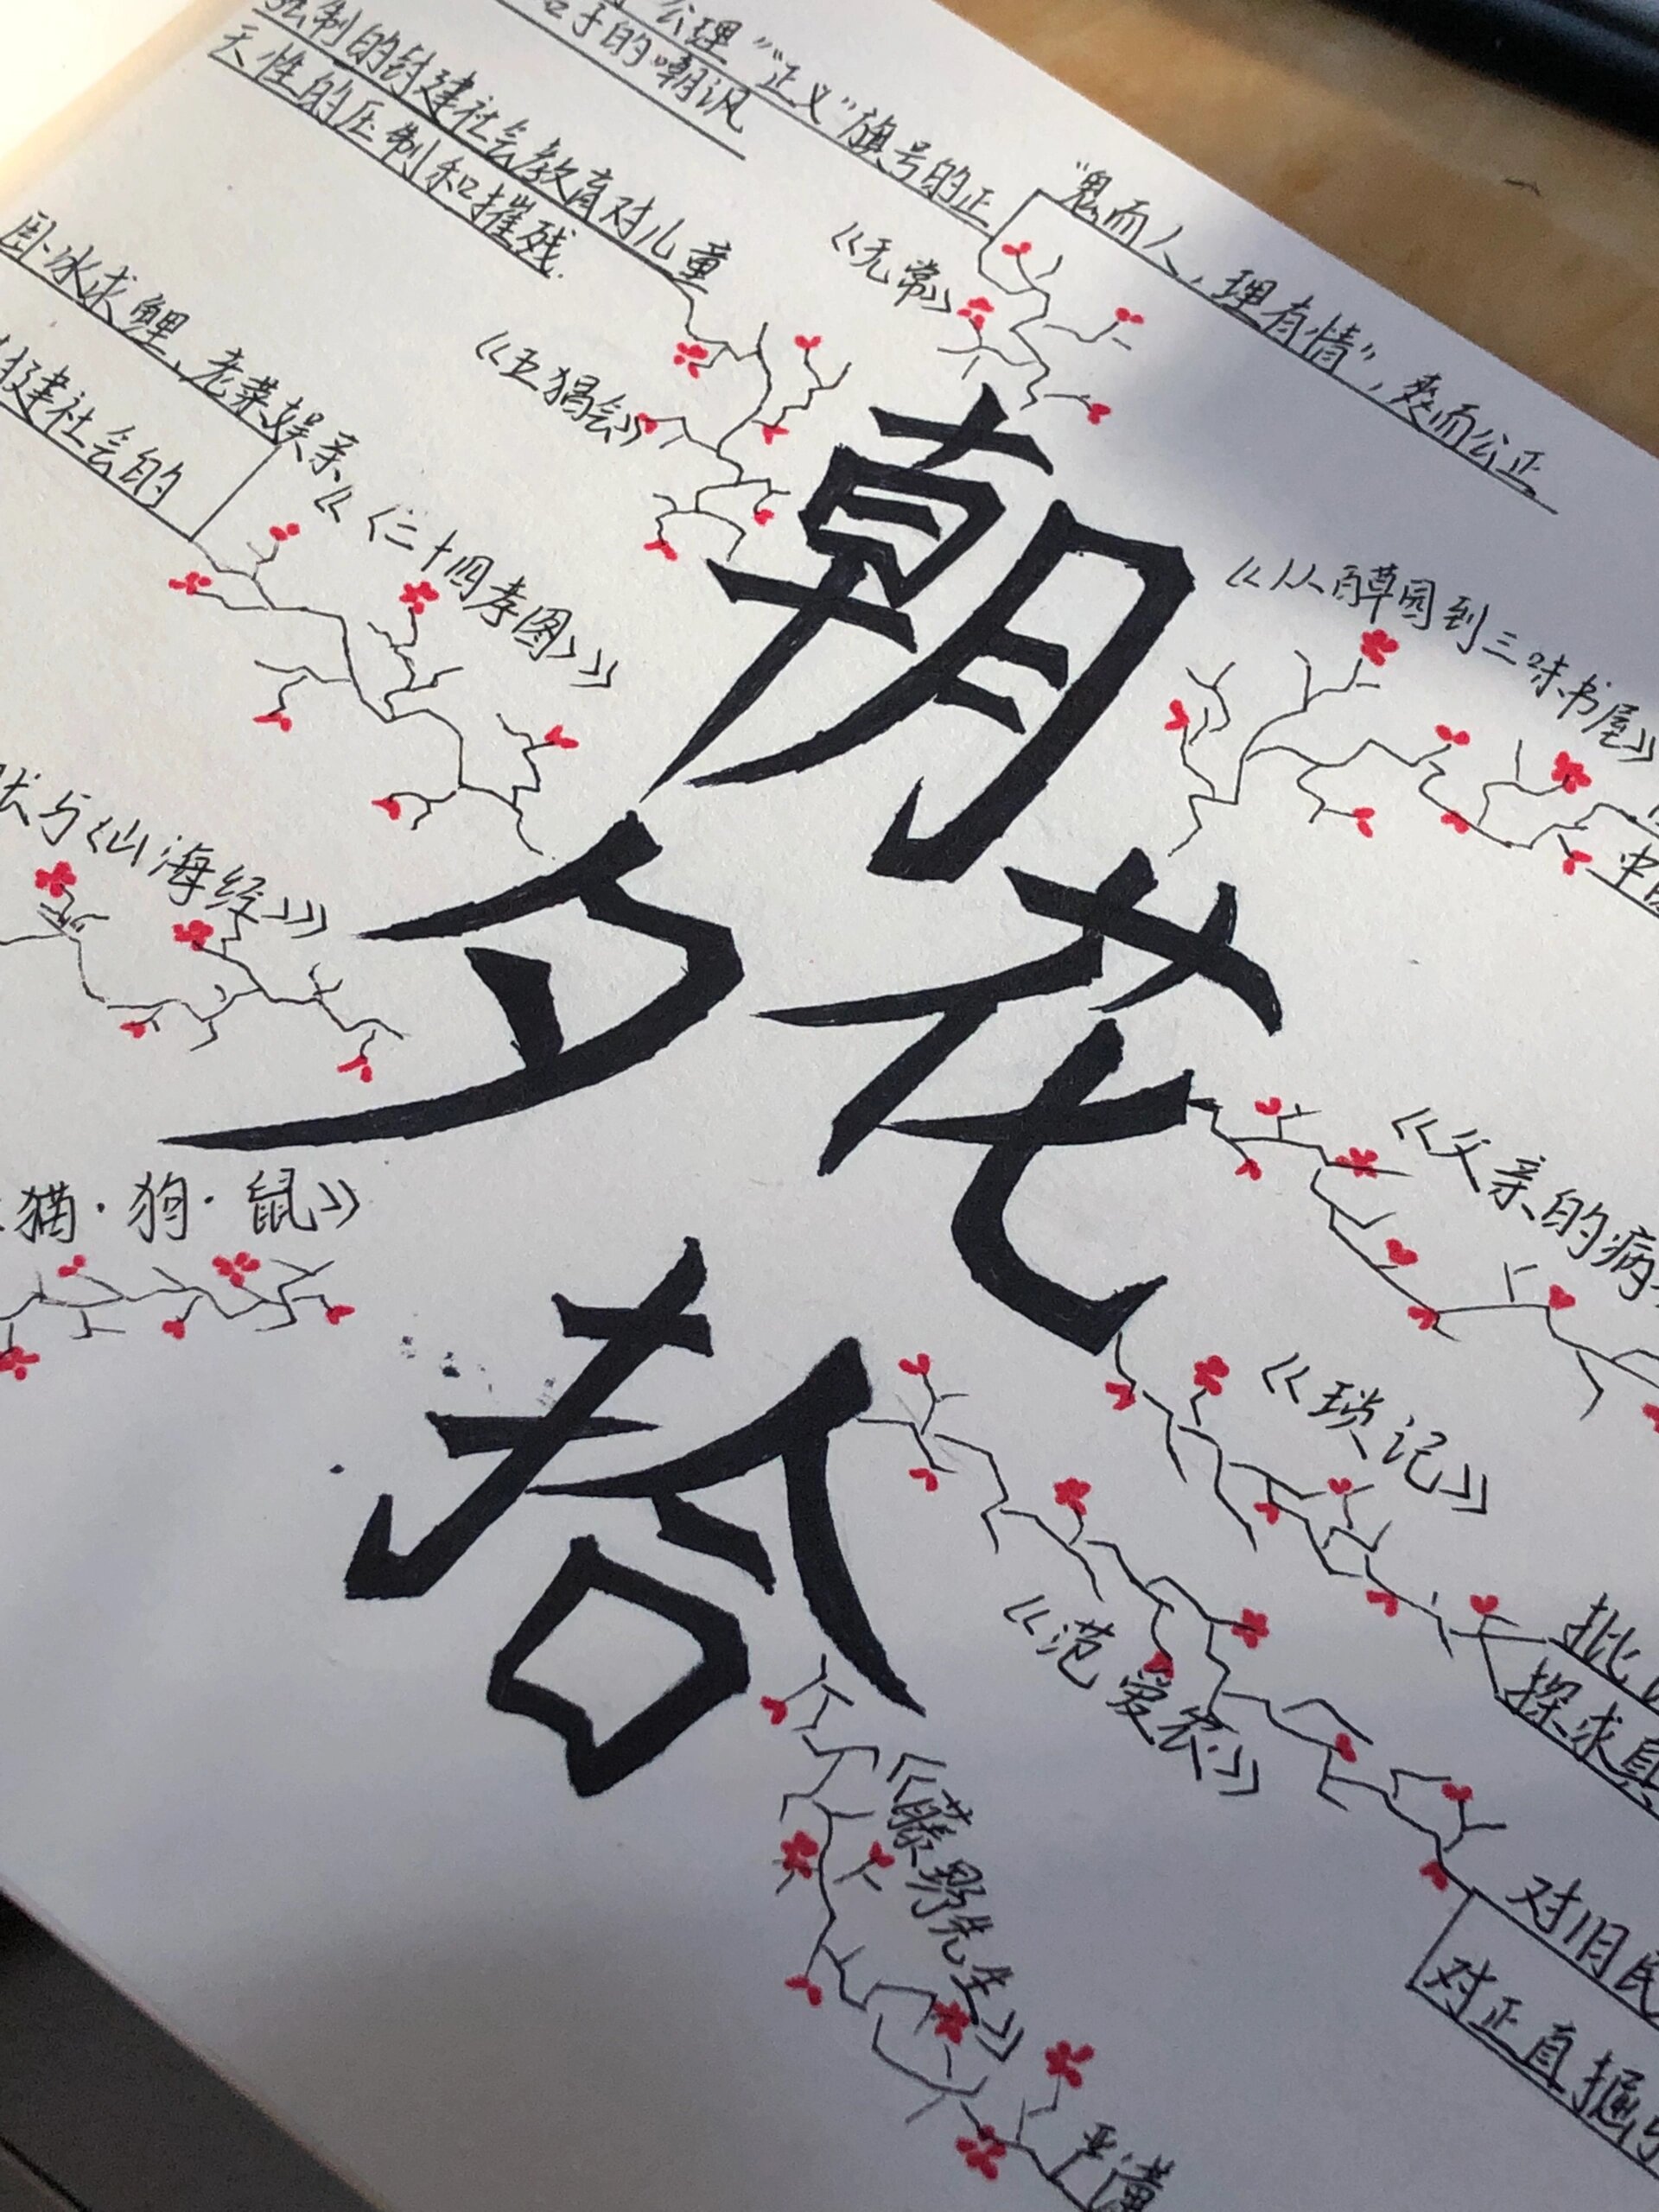 公理”“正义”旗号的正
手的嘲讽
制的封建社会教育对儿童
天性的压制和摧残.
“鬼而人,理有情”,爽而公正
《无常》
《五猖会》
卧冰求鲤、老莱娱亲
建社会的
《〈二十四孝图〉》
《从百草园到三味书屋》
与〈山海经〉》
猫·狗·鼠》
朝
花
夕
拾
《父亲的病
《琐记》
批
探求
《范爱农》
对旧民
对正直倔
《藤野先生》
严谨